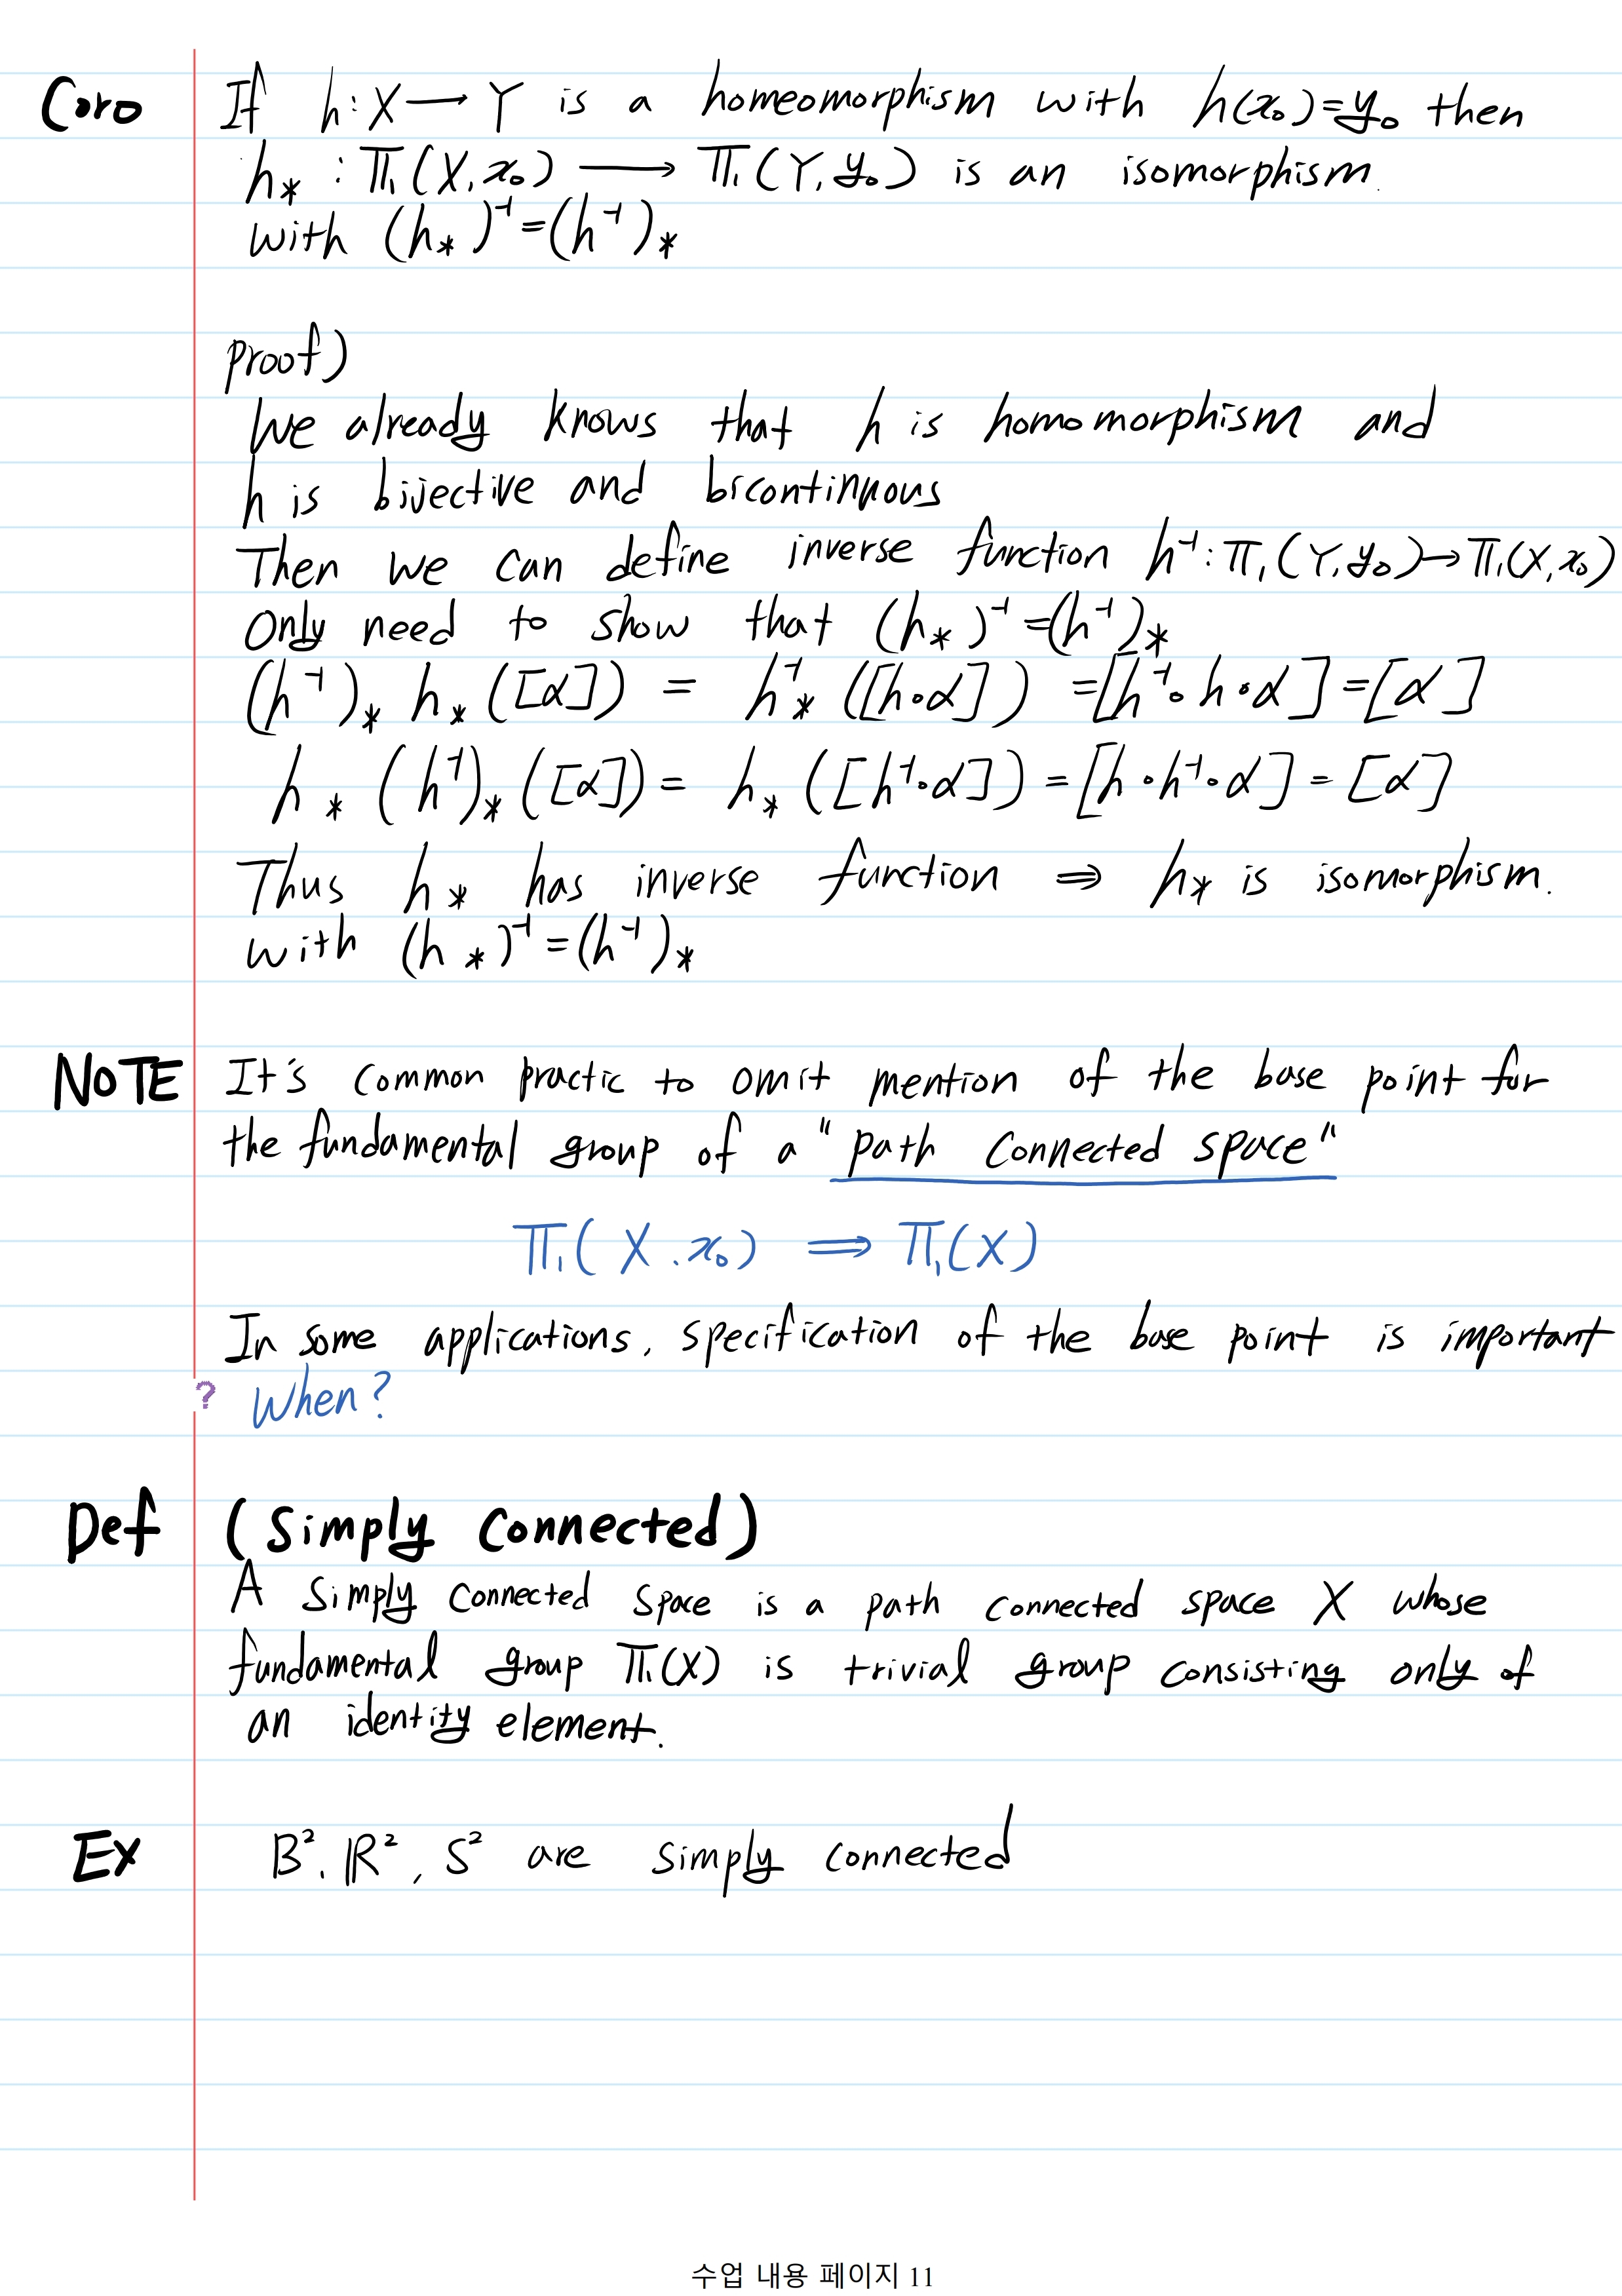 Coro If h : X ⟶ Y is a homeomorphism with h(x₀)=y₀ then
h∗ : π₁(X, x₀) ⟶ π₁(Y, y₀) is an isomorphism.
with (h∗)⁻¹=(h⁻¹)∗
proof)
We already knows that h is homomorphism and
h is bijective and bicontinuous
Then we can define inverse function h⁻¹ : π₁(Y, y₀)→π₁(X, x₀)
Only need to show that (h∗)⁻¹=(h⁻¹)∗
(h⁻¹)∗ h∗([α]) = h⁻¹∗([h∘α]) =[h⁻¹∘h∘α]=[α]
h∗(h⁻¹)∗([α]) = h∗([h⁻¹∘α]) =[h∘h⁻¹∘α] = [α]
Thus h∗ has inverse function ⇒ h∗ is isomorphism.
with (h∗)⁻¹=(h⁻¹)∗
NOTE It's common practic to omit mention of the base point for
the fundamental group of a "path connected space"
π₁(X . x₀) ⟹ π₁(X)
In some applications, specification of the base point is important
? When?
Def (Simply Connected)
A simply connected space is a path connected space X whose
fundamental group π₁(X) is trivial group consisting only of
an identity element.
Ex B², ℝ², S² are simply connected
수업 내용 페이지 11